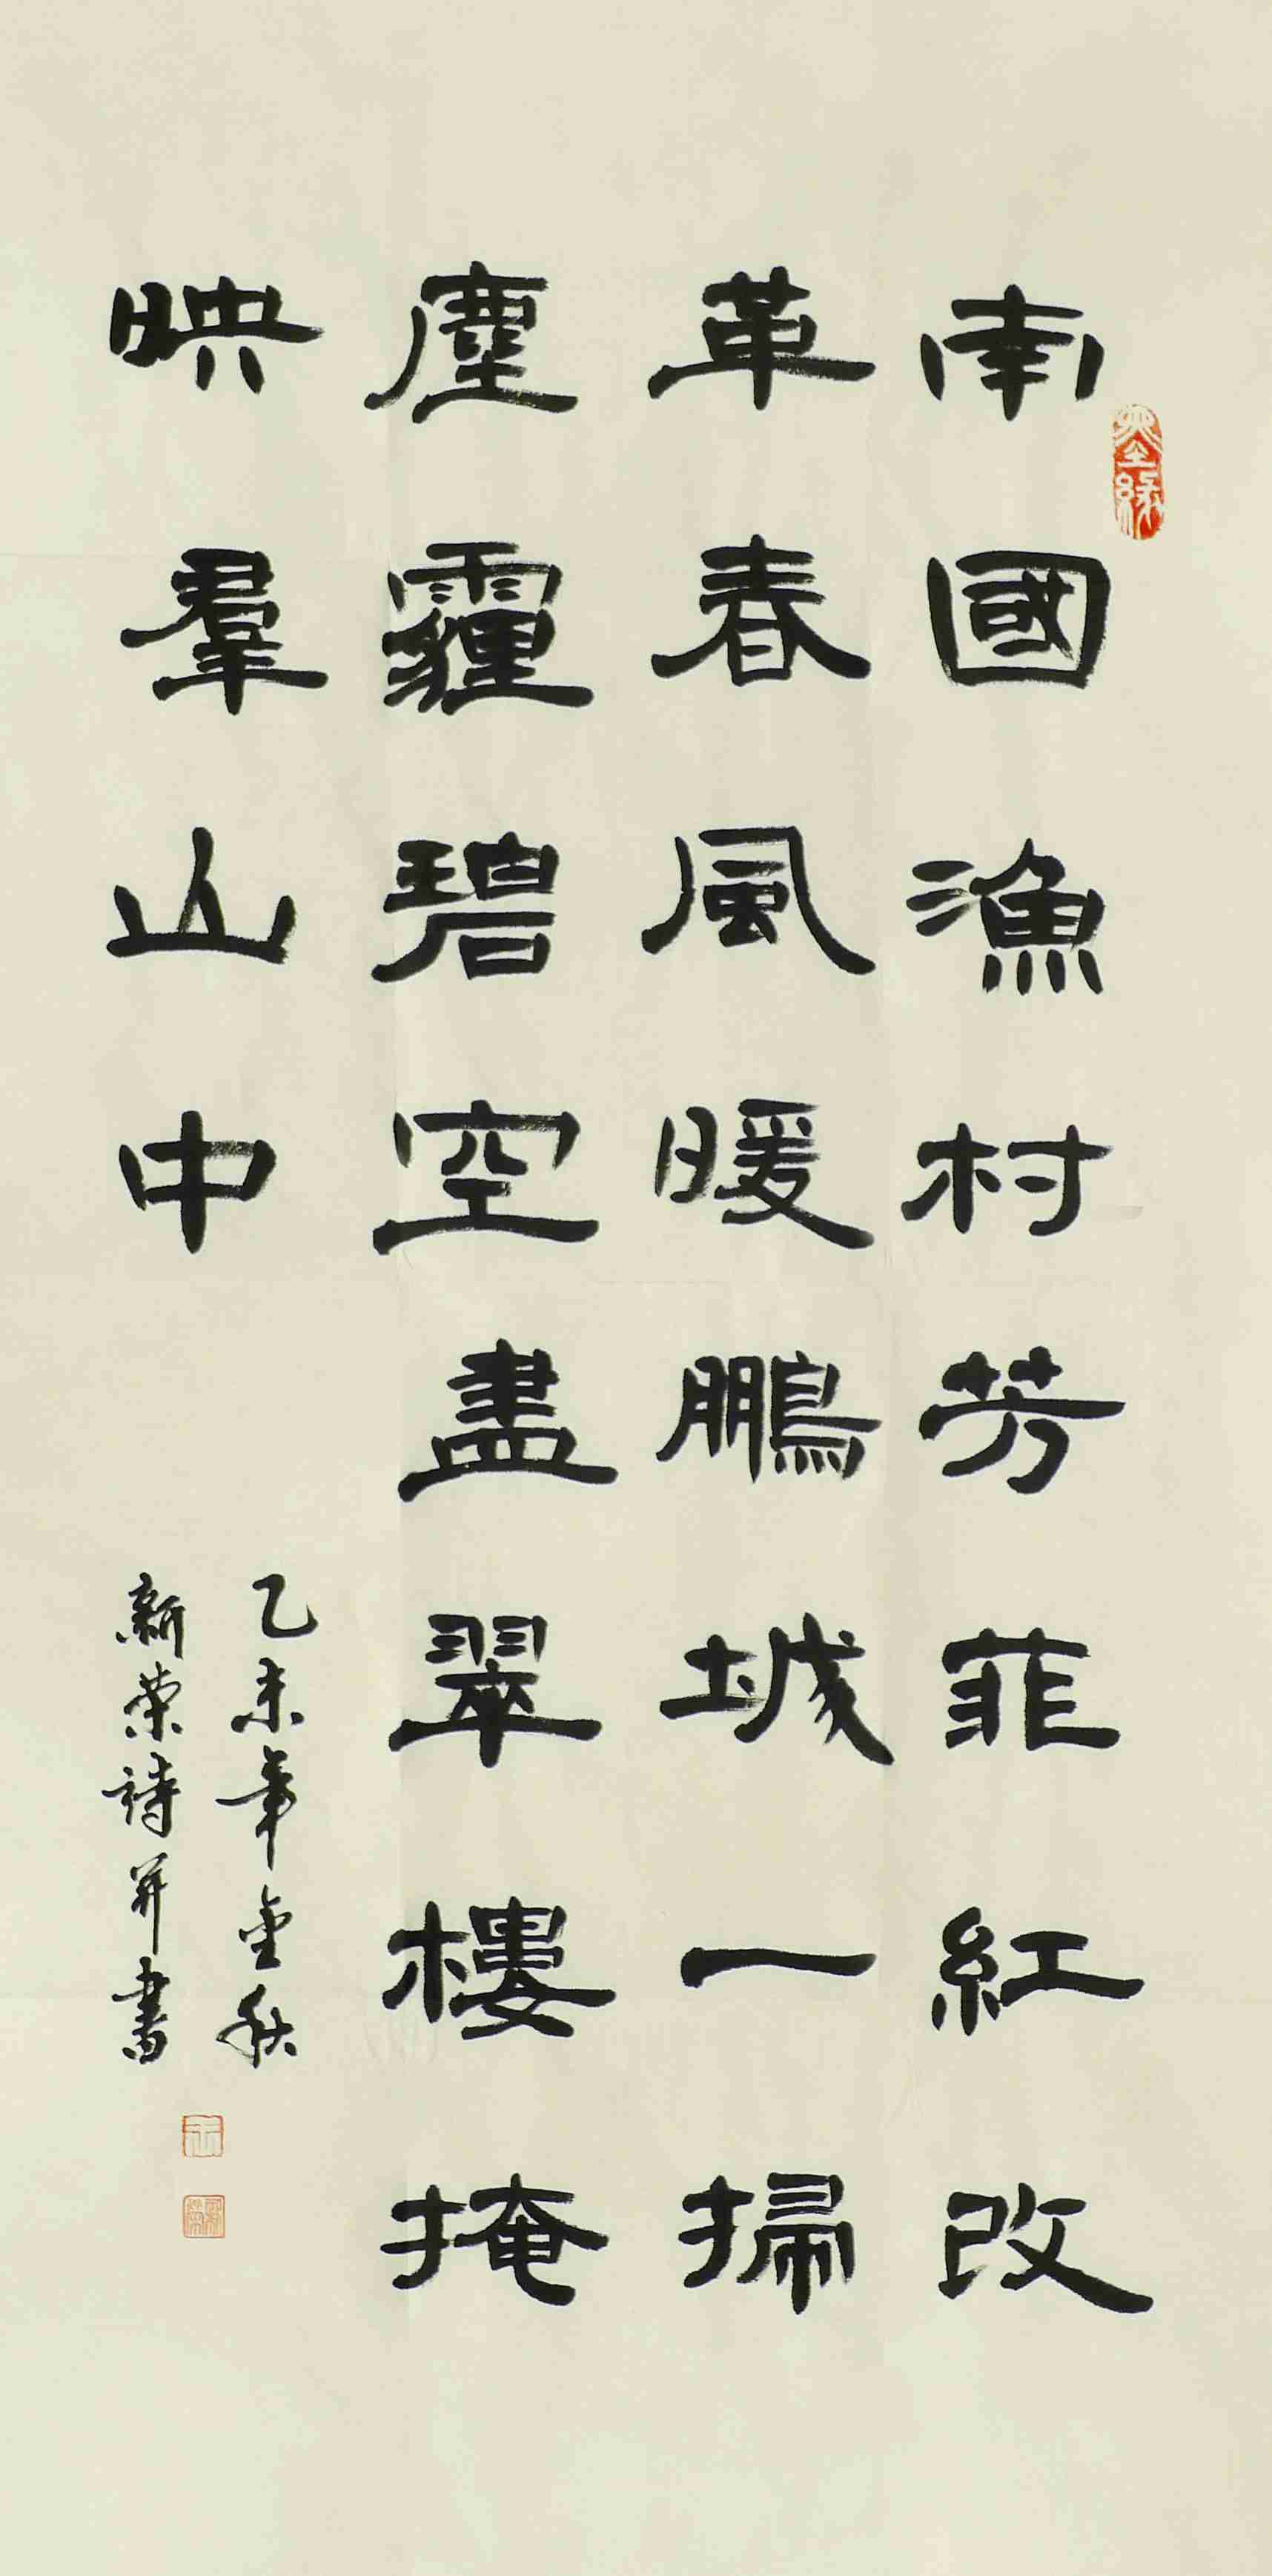 南國漁村芳菲紅改
革春風暖鵬城一掃
塵霾碧空盡翠樓掩
映羣山中
乙未年金秋
新榮詩并書
墨緣